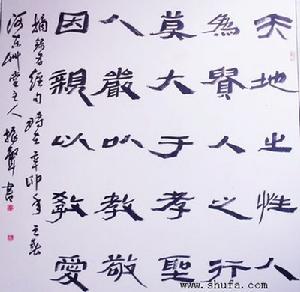 天地之性人
為貴人之行
莫大于孝聖
人嚴以教敬
因親以教愛
摘孝經句時在辛卯年之春
河东艸堂主人振聲書
www.shufa.com